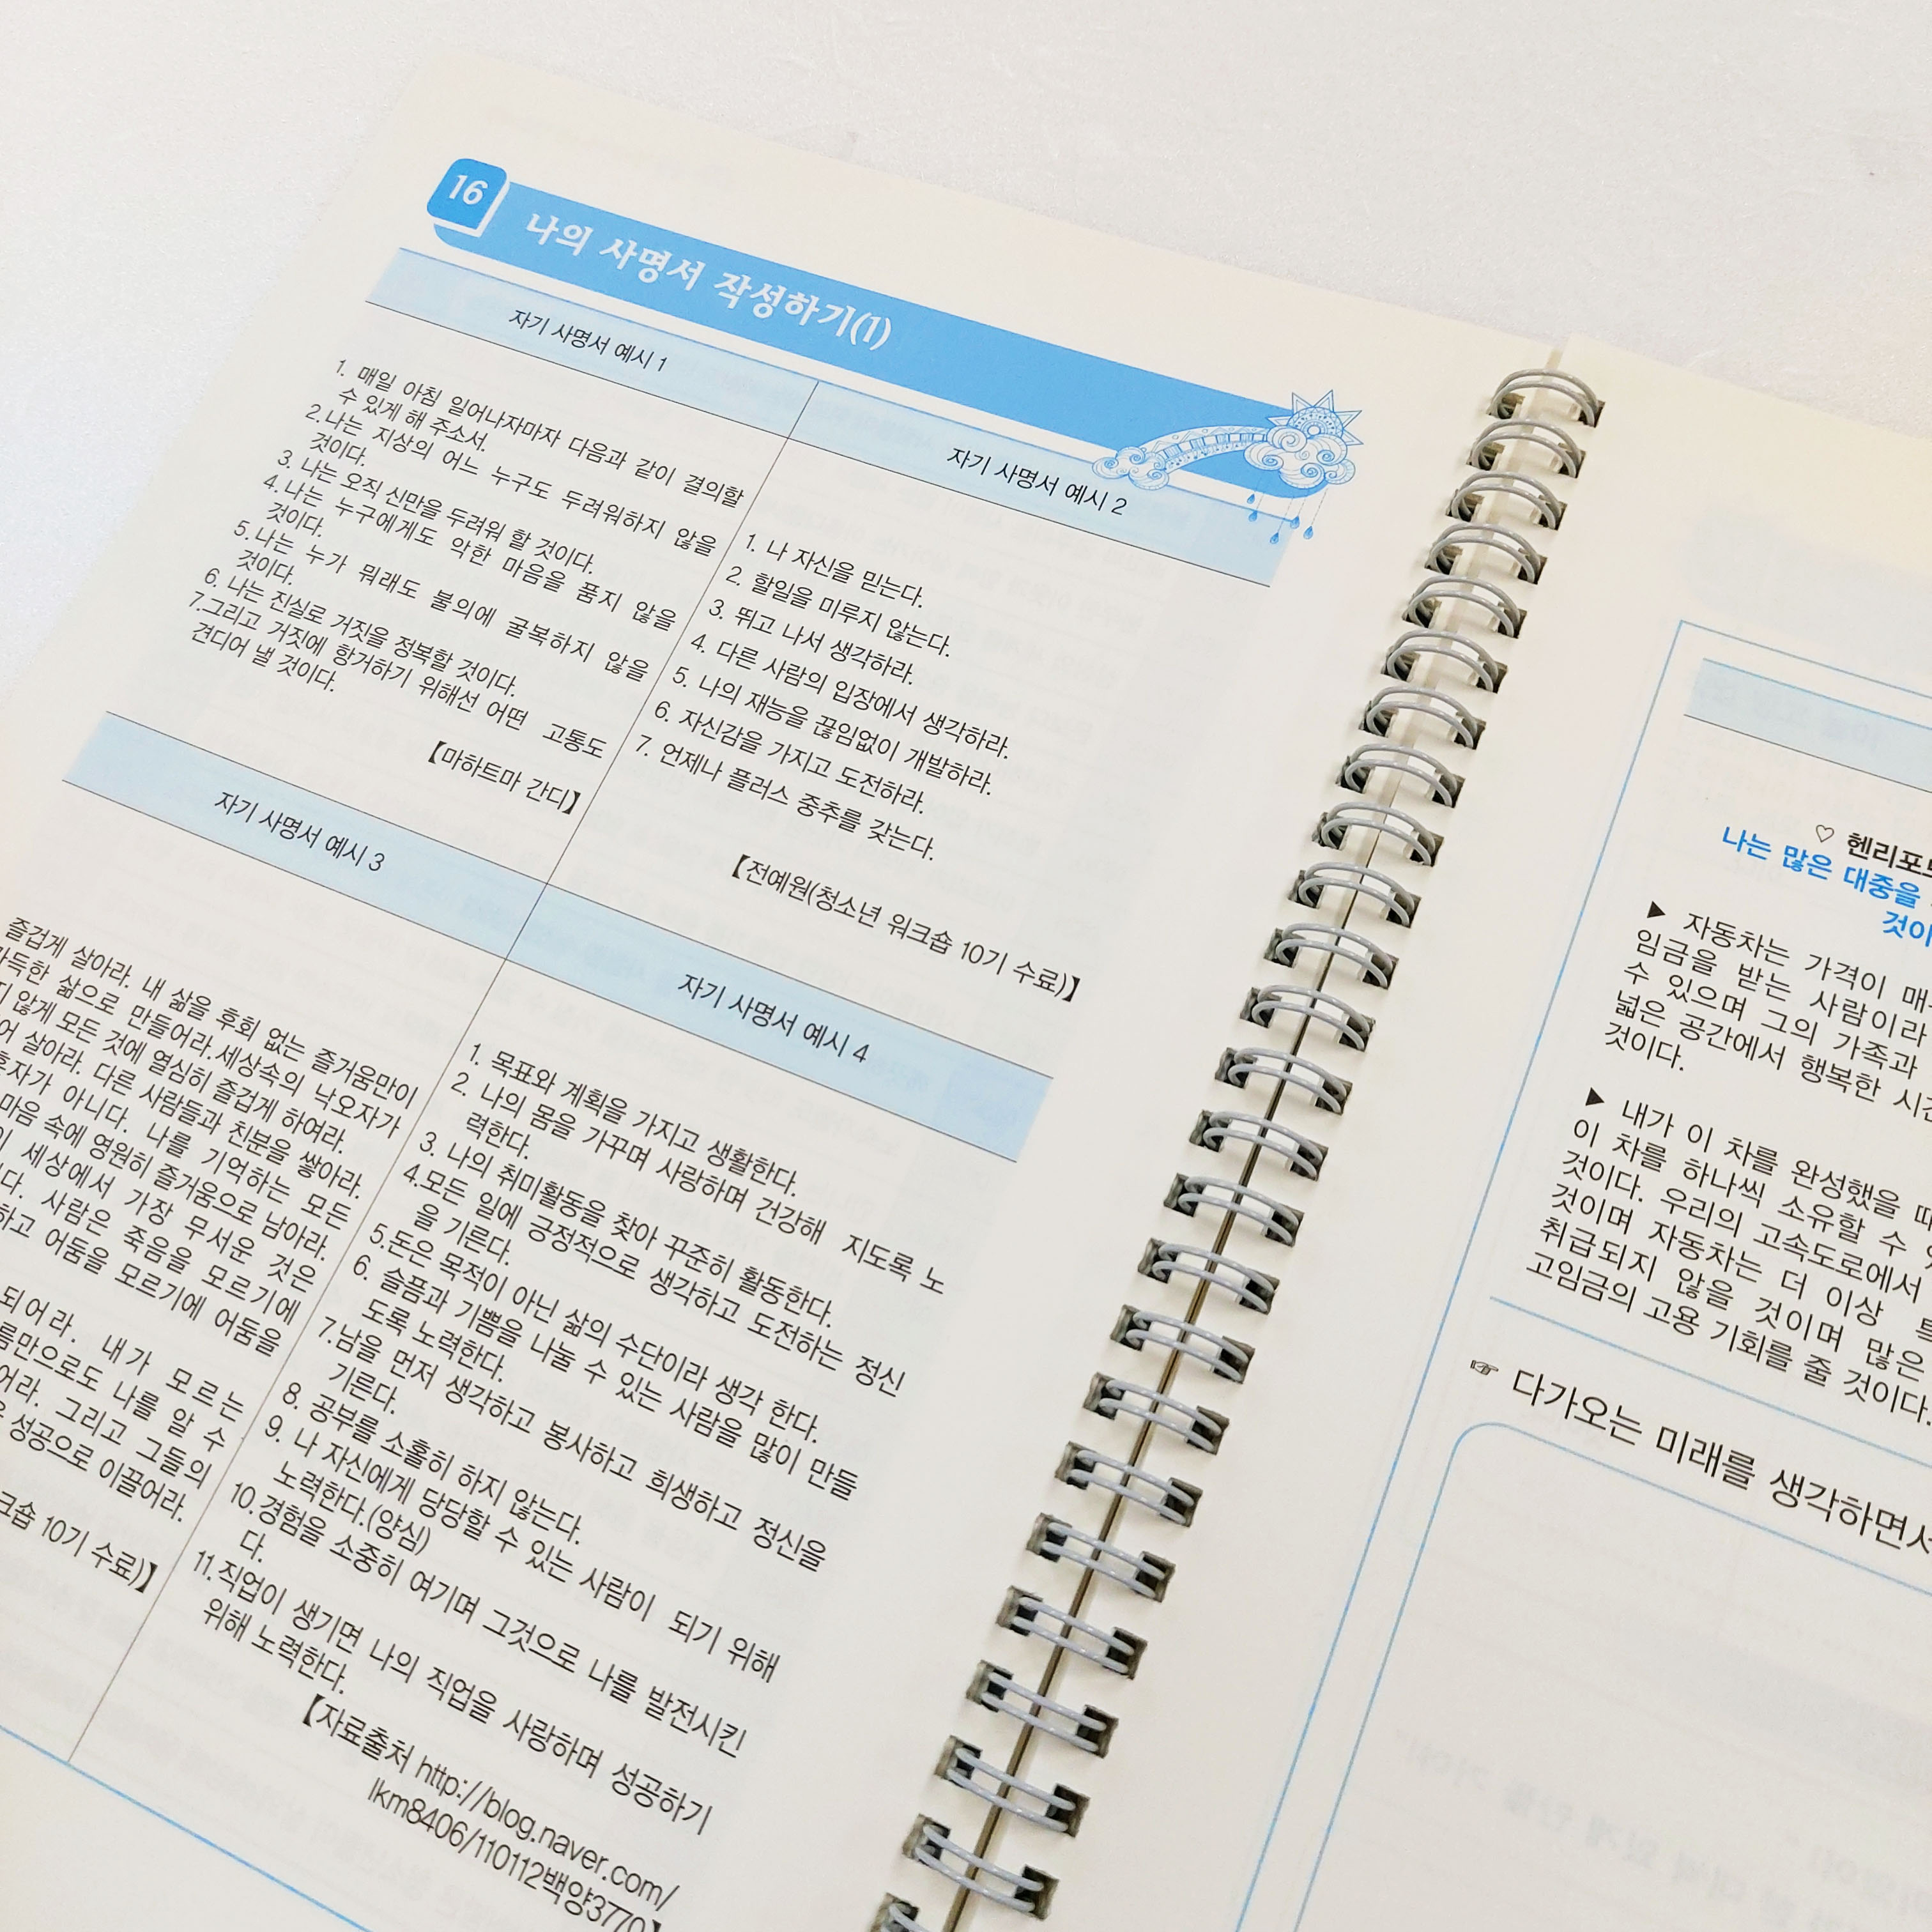 16
나의 사명서 작성하기(1)
자기 사명서 예시 1
1. 매일 아침 일어나자마자 다음과 같이 결의할
수 있게 해 주소서.
2.나는 지상의 어느 누구도 두려워하지 않을
것이다.
3. 나는 오직 신만을 두려워 할 것이다.
4.나는 누구에게도 악한 마음을 품지 않을
것이다.
5.나는 누가 뭐래도 불의에 굴복하지 않을
것이다.
6. 나는 진실로 거짓을 정복할 것이다.
7.그리고 거짓에 항거하기 위해선 어떤 고통도
견디어 낼 것이다.
【마하트마 간디】
자기 사명서 예시 2
1. 나 자신을 믿는다.
2. 할일을 미루지 않는다.
3. 뛰고 나서 생각하라.
4. 다른 사람의 입장에서 생각하라.
5. 나의 재능을 끊임없이 개발하라.
6. 자신감을 가지고 도전하라.
7. 언제나 플러스 중추를 갖는다.
【전예원(청소년 워크숍 10기 수료)】
자기 사명서 예시 3
즐겁게 살아라. 내 삶을 후회 없는 즐거움만이
가득한 삶으로 만들어라.세상속의 낙오자가
않게 모든 것에 열심히 즐겁게 하여라.
살아라. 다른 사람들과 친분을 쌓아라.
혼자가 아니다. 나를 기억하는 모든
마음 속에 영원히 즐거움으로 남아라.
세상에서 가장 무서운 것은
사람은 죽음을 모르기에
어둠을 모르기에 어둠을
되어라. 내가 모르는
나를 알 수
그리고 그들의
성공으로 이끌어라.
10기 수료)】
자기 사명서 예시 4
1. 목표와 계획을 가지고 생활한다.
2. 나의 몸을 가꾸며 사랑하며 건강해 지도록 노
력한다.
3. 나의 취미활동을 찾아 꾸준히 활동한다.
4.모든 일에 긍정적으로 생각하고 도전하는 정신
을 기른다.
5.돈은 목적이 아닌 삶의 수단이라 생각 한다.
6. 슬픔과 기쁨을 나눌 수 있는 사람을 많이 만들
도록 노력한다.
7.남을 먼저 생각하고 봉사하고 희생하고 정신을
기른다.
8. 공부를 소홀히 하지 않는다.
9. 나 자신에게 당당할 수 있는 사람이 되기 위해
노력한다.(양심)
10.경험을 소중히 여기며 그것으로 나를 발전시킨
다.
11.직업이 생기면 나의 직업을 사랑하며 성공하기
위해 노력한다.
【자료출처 http://blog.naver.com/
lkm8406/110112백양3770】
♡ 헨리포드
나는 많은 대중을
▶ 자동차는 가격이
임금을 받는 사람이라
수 있으며 그의 가족과
넓은 공간에서 행복한
것이다.
▶ 내가 이 차를 완성했을
이 차를 하나씩 소유할 수
것이다. 우리의 고속도로에서
것이며 자동차는 더 이상
취급되지 않을 것이며 많은
고임금의 고용 기회를 줄 것이다.
☞ 다가오는 미래를 생각하면서